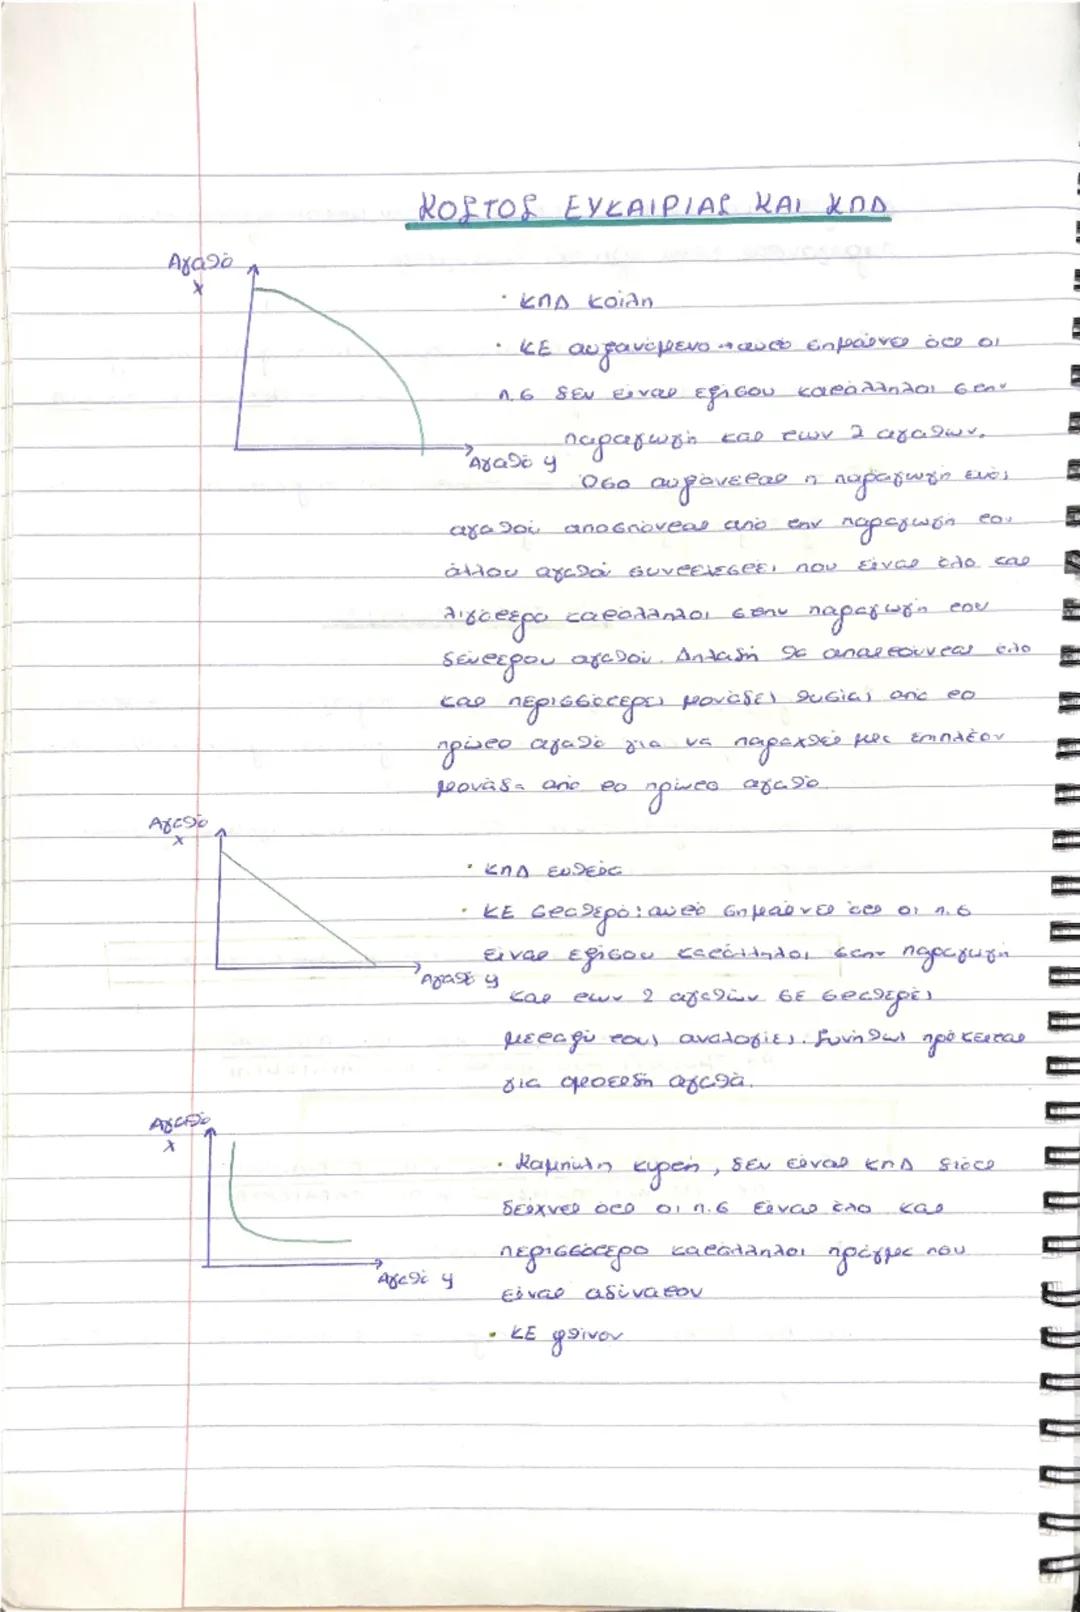 ΚΟΣΤΟΣ ΕΥΚΑΙΡΙΑΣ ΚΑΙ ΚΠΔ
Αγαθό
x
Αγαθό y
· ΚΠΔ κοίλη
· ΚΕ αυξανόμενο → αυτό σημαίνει ότι οι
π.σ δεν είναι εξίσου κατάλληλοι στην
παραγωγή και των 2 αγαθών.
Όσο αυξάνεται η παραγωγή ενός
αγαθού αποσπόνται από την παραγωγή του
άλλου αγαθού συντελεστές που είναι όλο και
λιγότερο κατάλληλοι στην παραγωγή του
δεύτερου αγαθού. Δηλαδή θα απαιτούνται όλο
και περισσότερες μονάδες θυσίας από το
πρώτο αγαθό για να παραχθεί μια επιπλέον
μονάδα από το πρώτο αγαθό.
Αγαθό
x
Αγαθό y
· ΚΠΔ ευθεία
· ΚΕ σταθερό: αυτό σημαίνει ότι οι π.σ
είναι εξίσου κατάλληλοι στην παραγωγή
και των 2 αγαθών σε σταθερές
μεταξύ τους αναλογίες. Συνήθως πρόκειται
για ομοειδή αγαθά.
Αγαθό
x
Αγαθό y
· Καμπύλη κυρτή, δεν είναι ΚΠΔ διότι
δείχνει ότι οι π.σ είναι όλο και
περισσότερο κατάλληλοι πράγμα που
είναι αδύνατον
· ΚΕ φθίνον